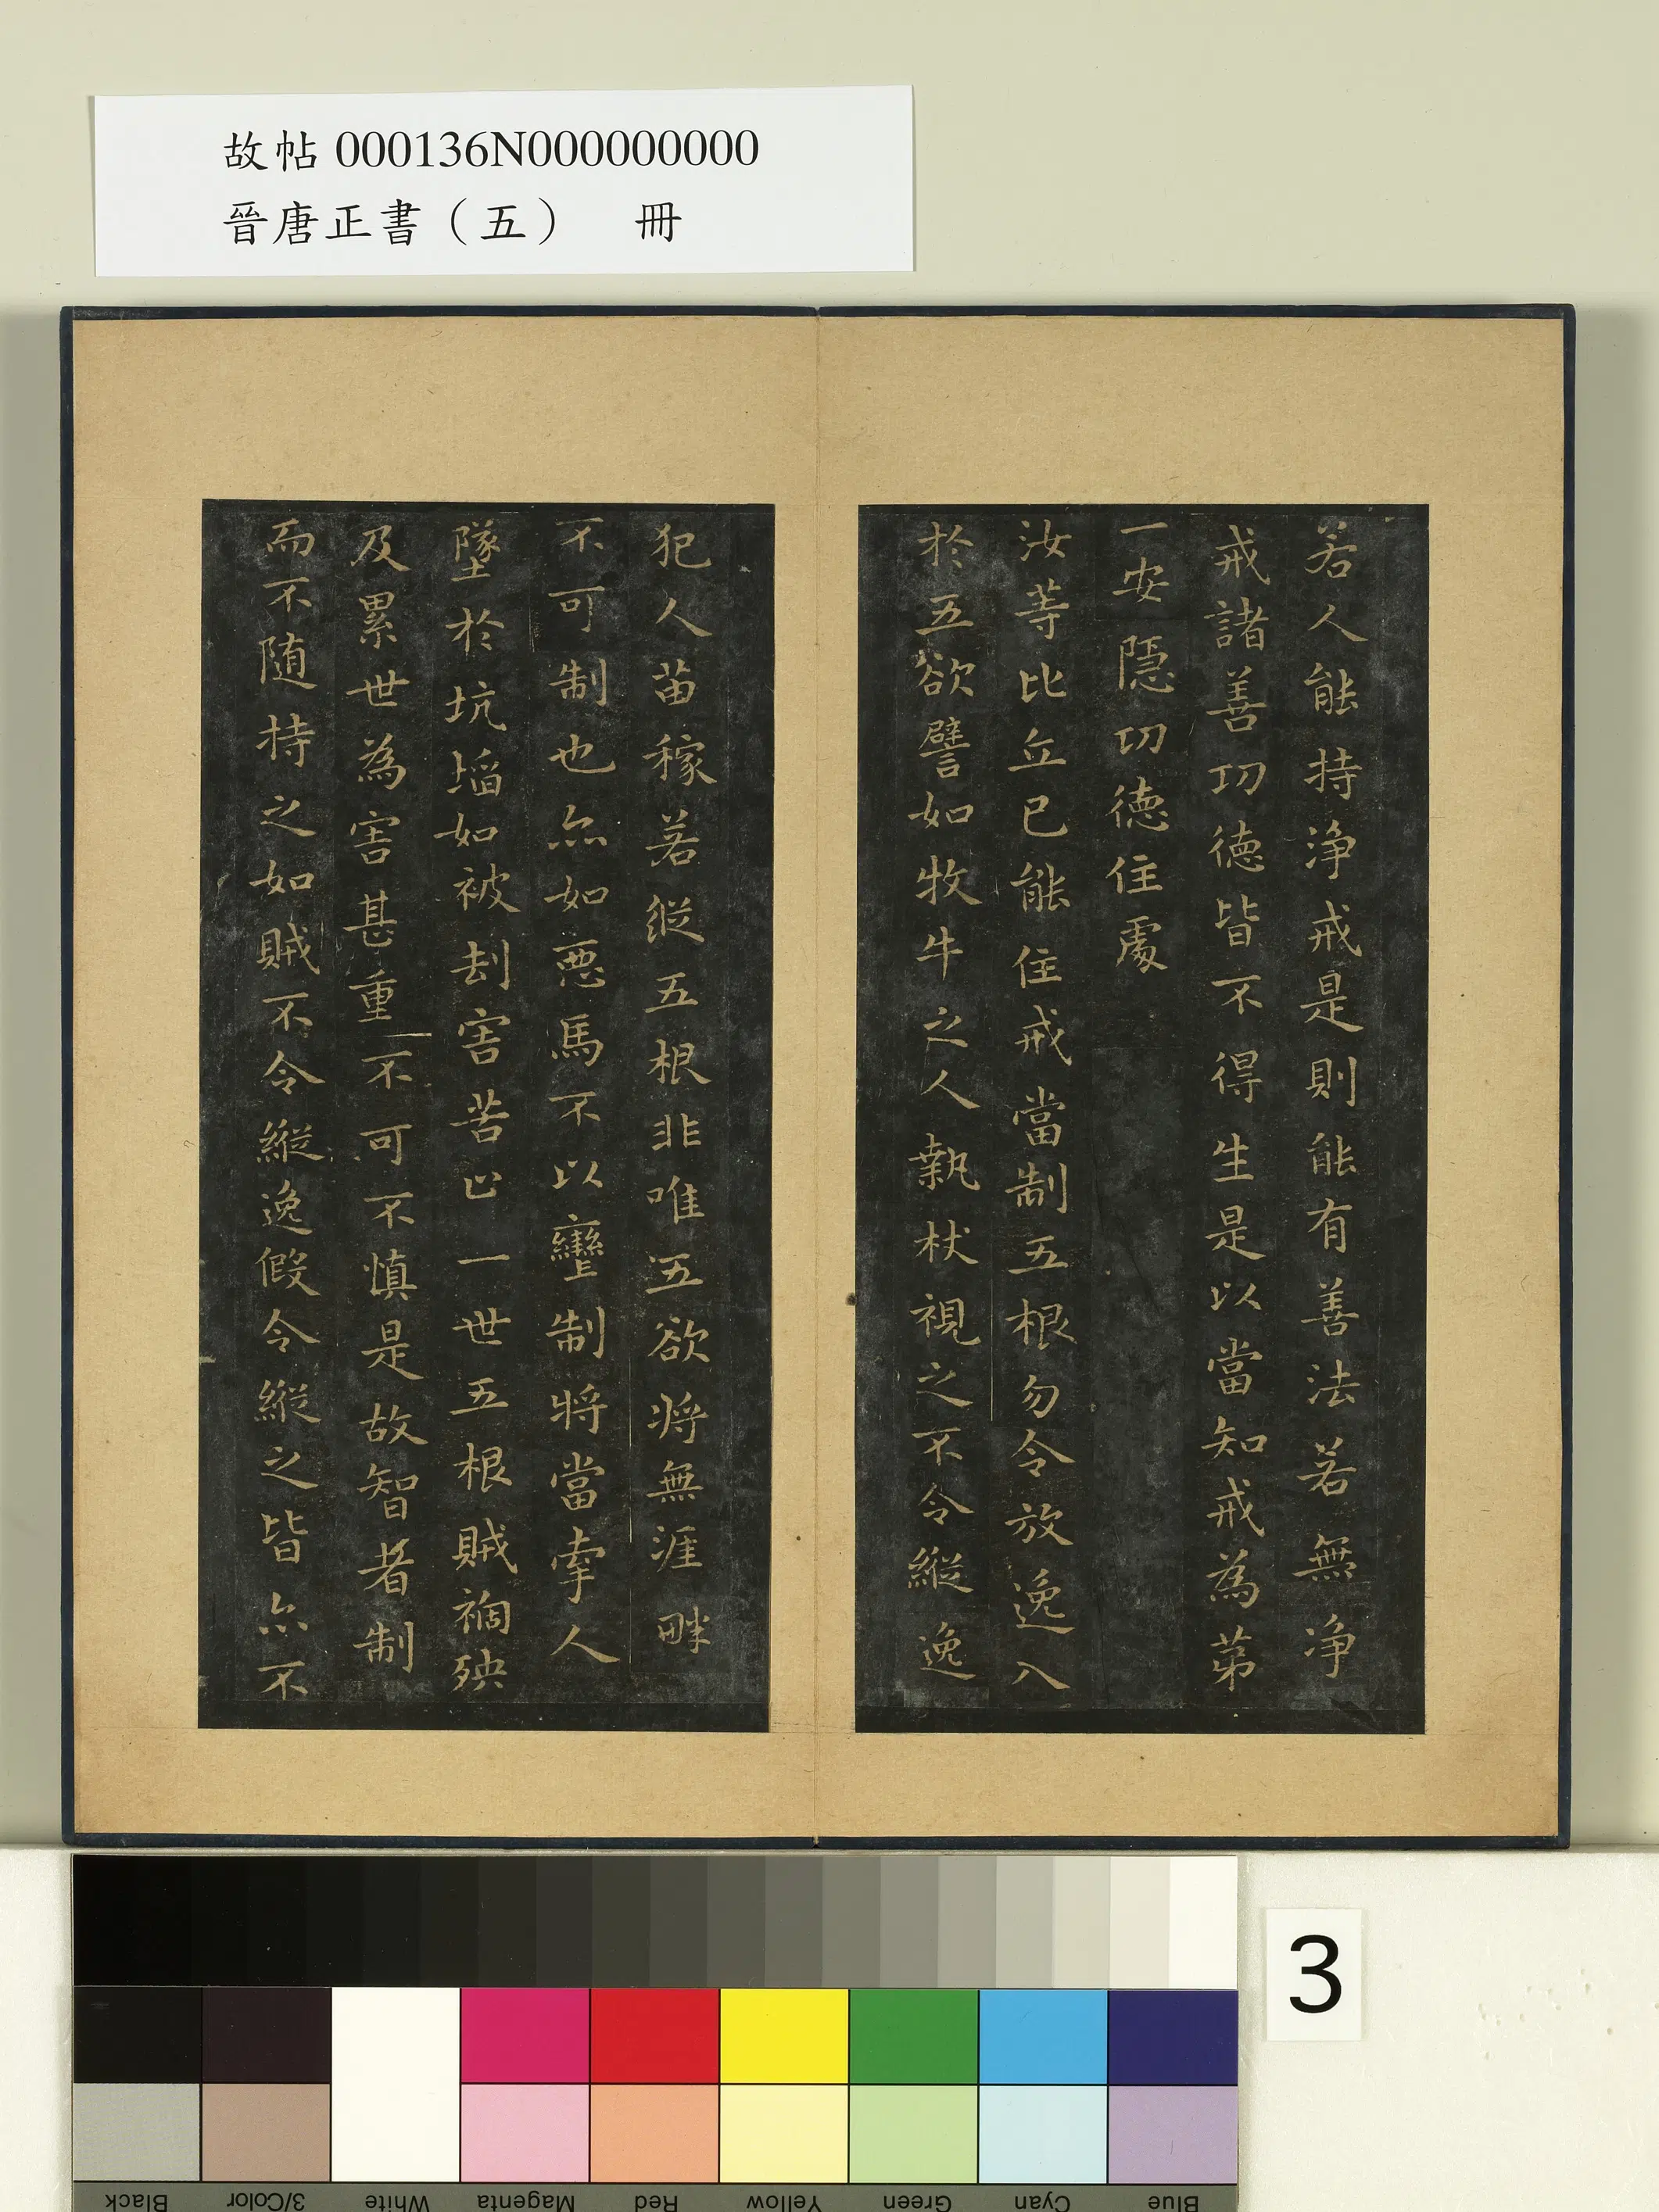 故帖 000136N000000000
晉唐正書（五） 冊
若人能持淨戒是則能有善法若無淨
戒諸善功德皆不得生是以當知戒為第
一安隱功德住處
汝等比丘已能住戒當制五根勿令放逸入
於五欲譬如牧牛之人執杖視之不令縱逸
犯人苗稼若縱五根非唯五欲將無涯畔
不可制也亦如惡馬不以轡制將當牽人
墜於坑埳如被劫害苦止一世五根賊禍殃
及累世為害甚重不可不慎是故智者制
而不随持之如賊不令縱逸假令縱之皆亦不
3
Black
3/Color
White
Magenta
Red
Yellow
Green
Cyan
Blue